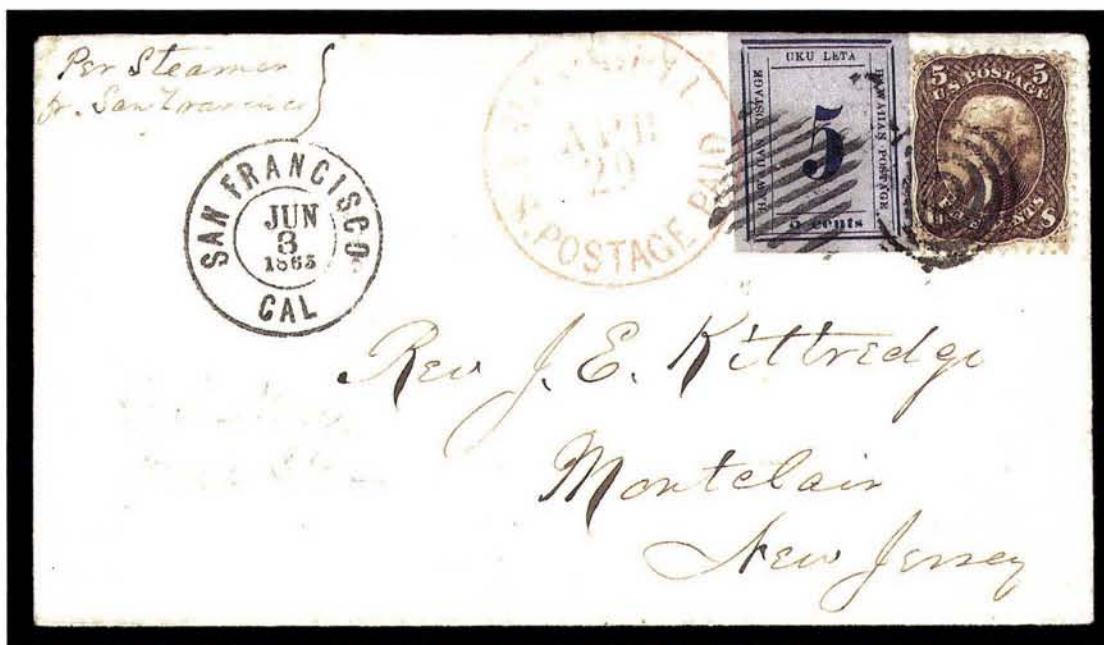 Per Steamer
fr. San Francisco
SAN FRANCISCO
JUN
3
1865
CAL
APR
29
U.S. POSTAGE PAID
UKU LETA
HAWAIIAN POSTAGE
5
HAWAIIAN POSTAGE
5 cents
5 5
U.S. POSTAGE
FIVE CENTS 5
Rev J. E. Kittredge
Montclair
New Jersey